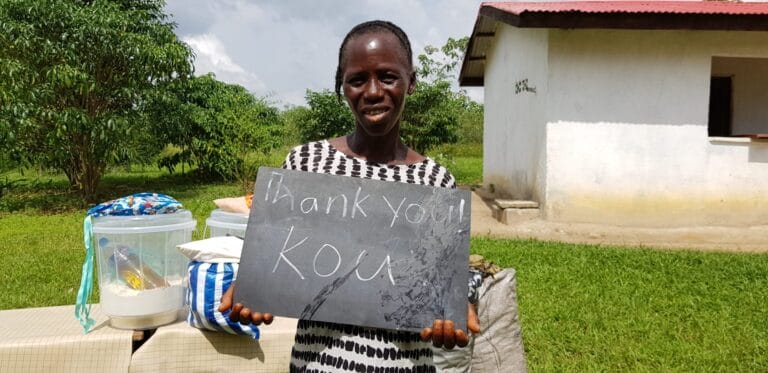 Thank you!
Kou